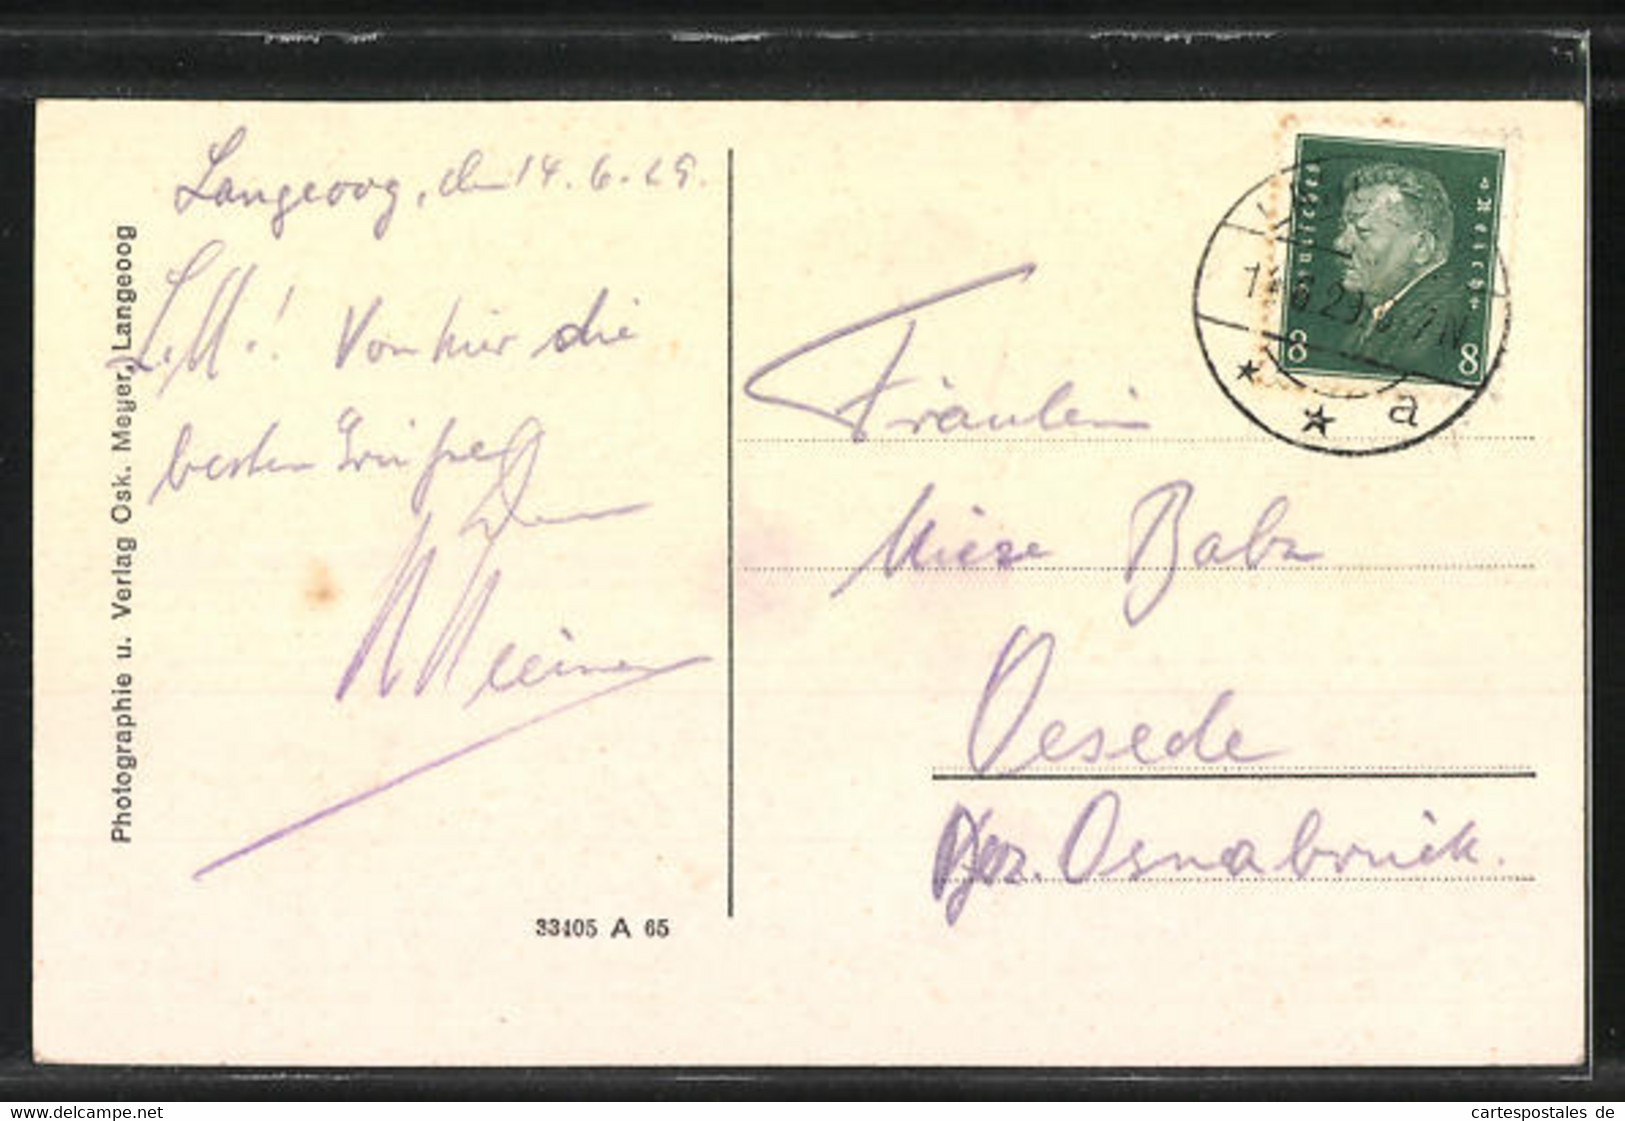 Langeoog, den 14.6.29.
L. M.! Von hier die
besten Grüße
Dein
Fräulein
Miese Baba
Oesede
Bez. Osnabrück.
Photographie u. Verlag Osk. Meyer, Langeoog
33405 A 65
Deutsches Reich
8 8
29 6-7 N
a
www.delcampe.net
cartespostales de